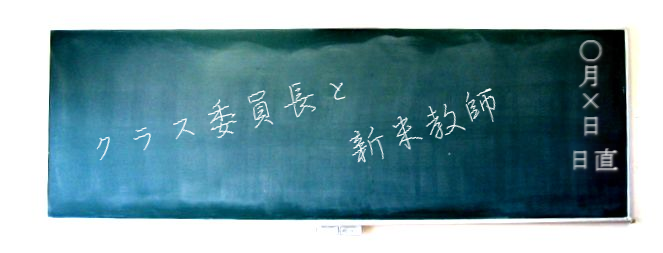 クラス委員長と
新来教師
〇月×日
日直